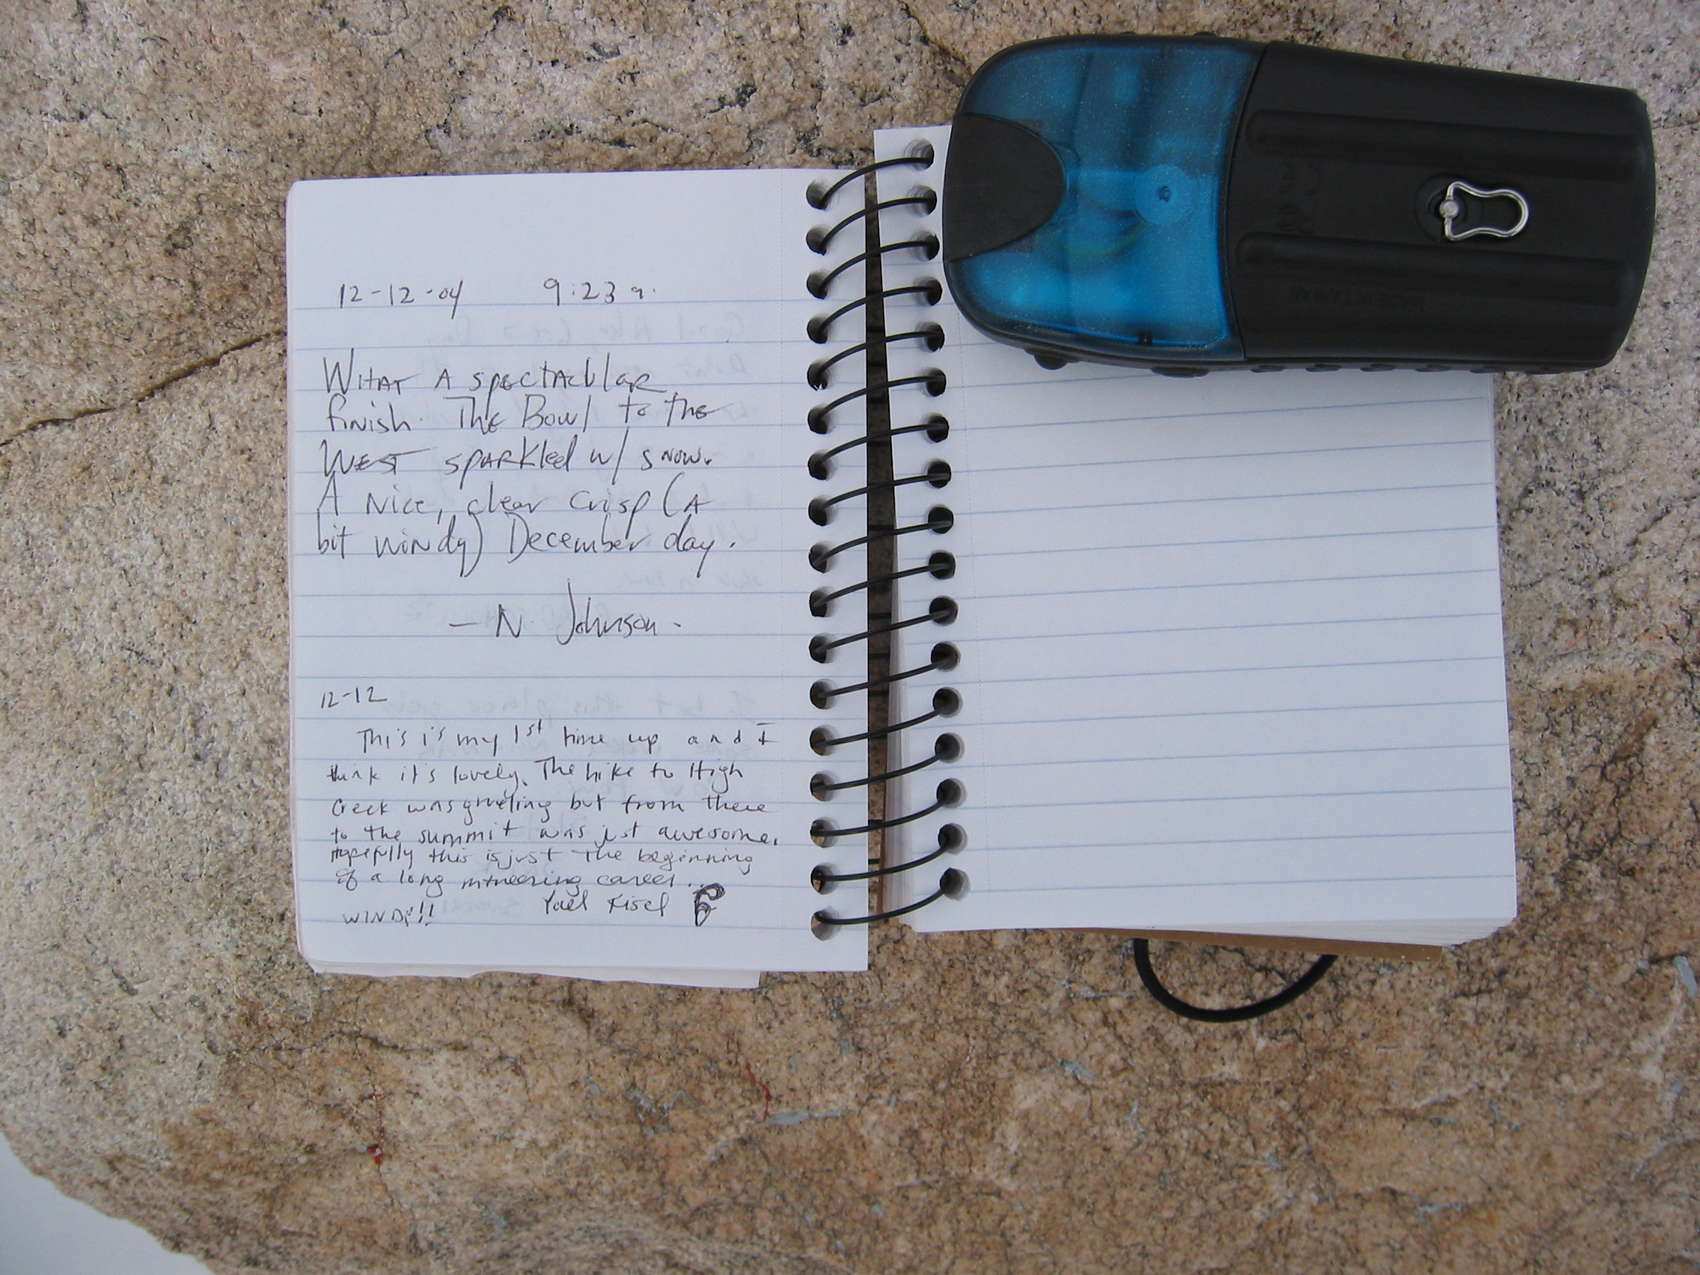 12-12-04 9:23 a.
WHAT A spectacular
finish. The Bowl to the
WEST sparkled w/ snow.
A Nice, clear crisp (A
bit windy) December day.
— N. Johnson.
12-12
This is my 1st time up and I
think it's lovely. The hike to High
Creek was grueling but from there
to the summit was just awesome.
Hopefully this is just the beginning
of a long mtneering career...
WINDY!! Yael